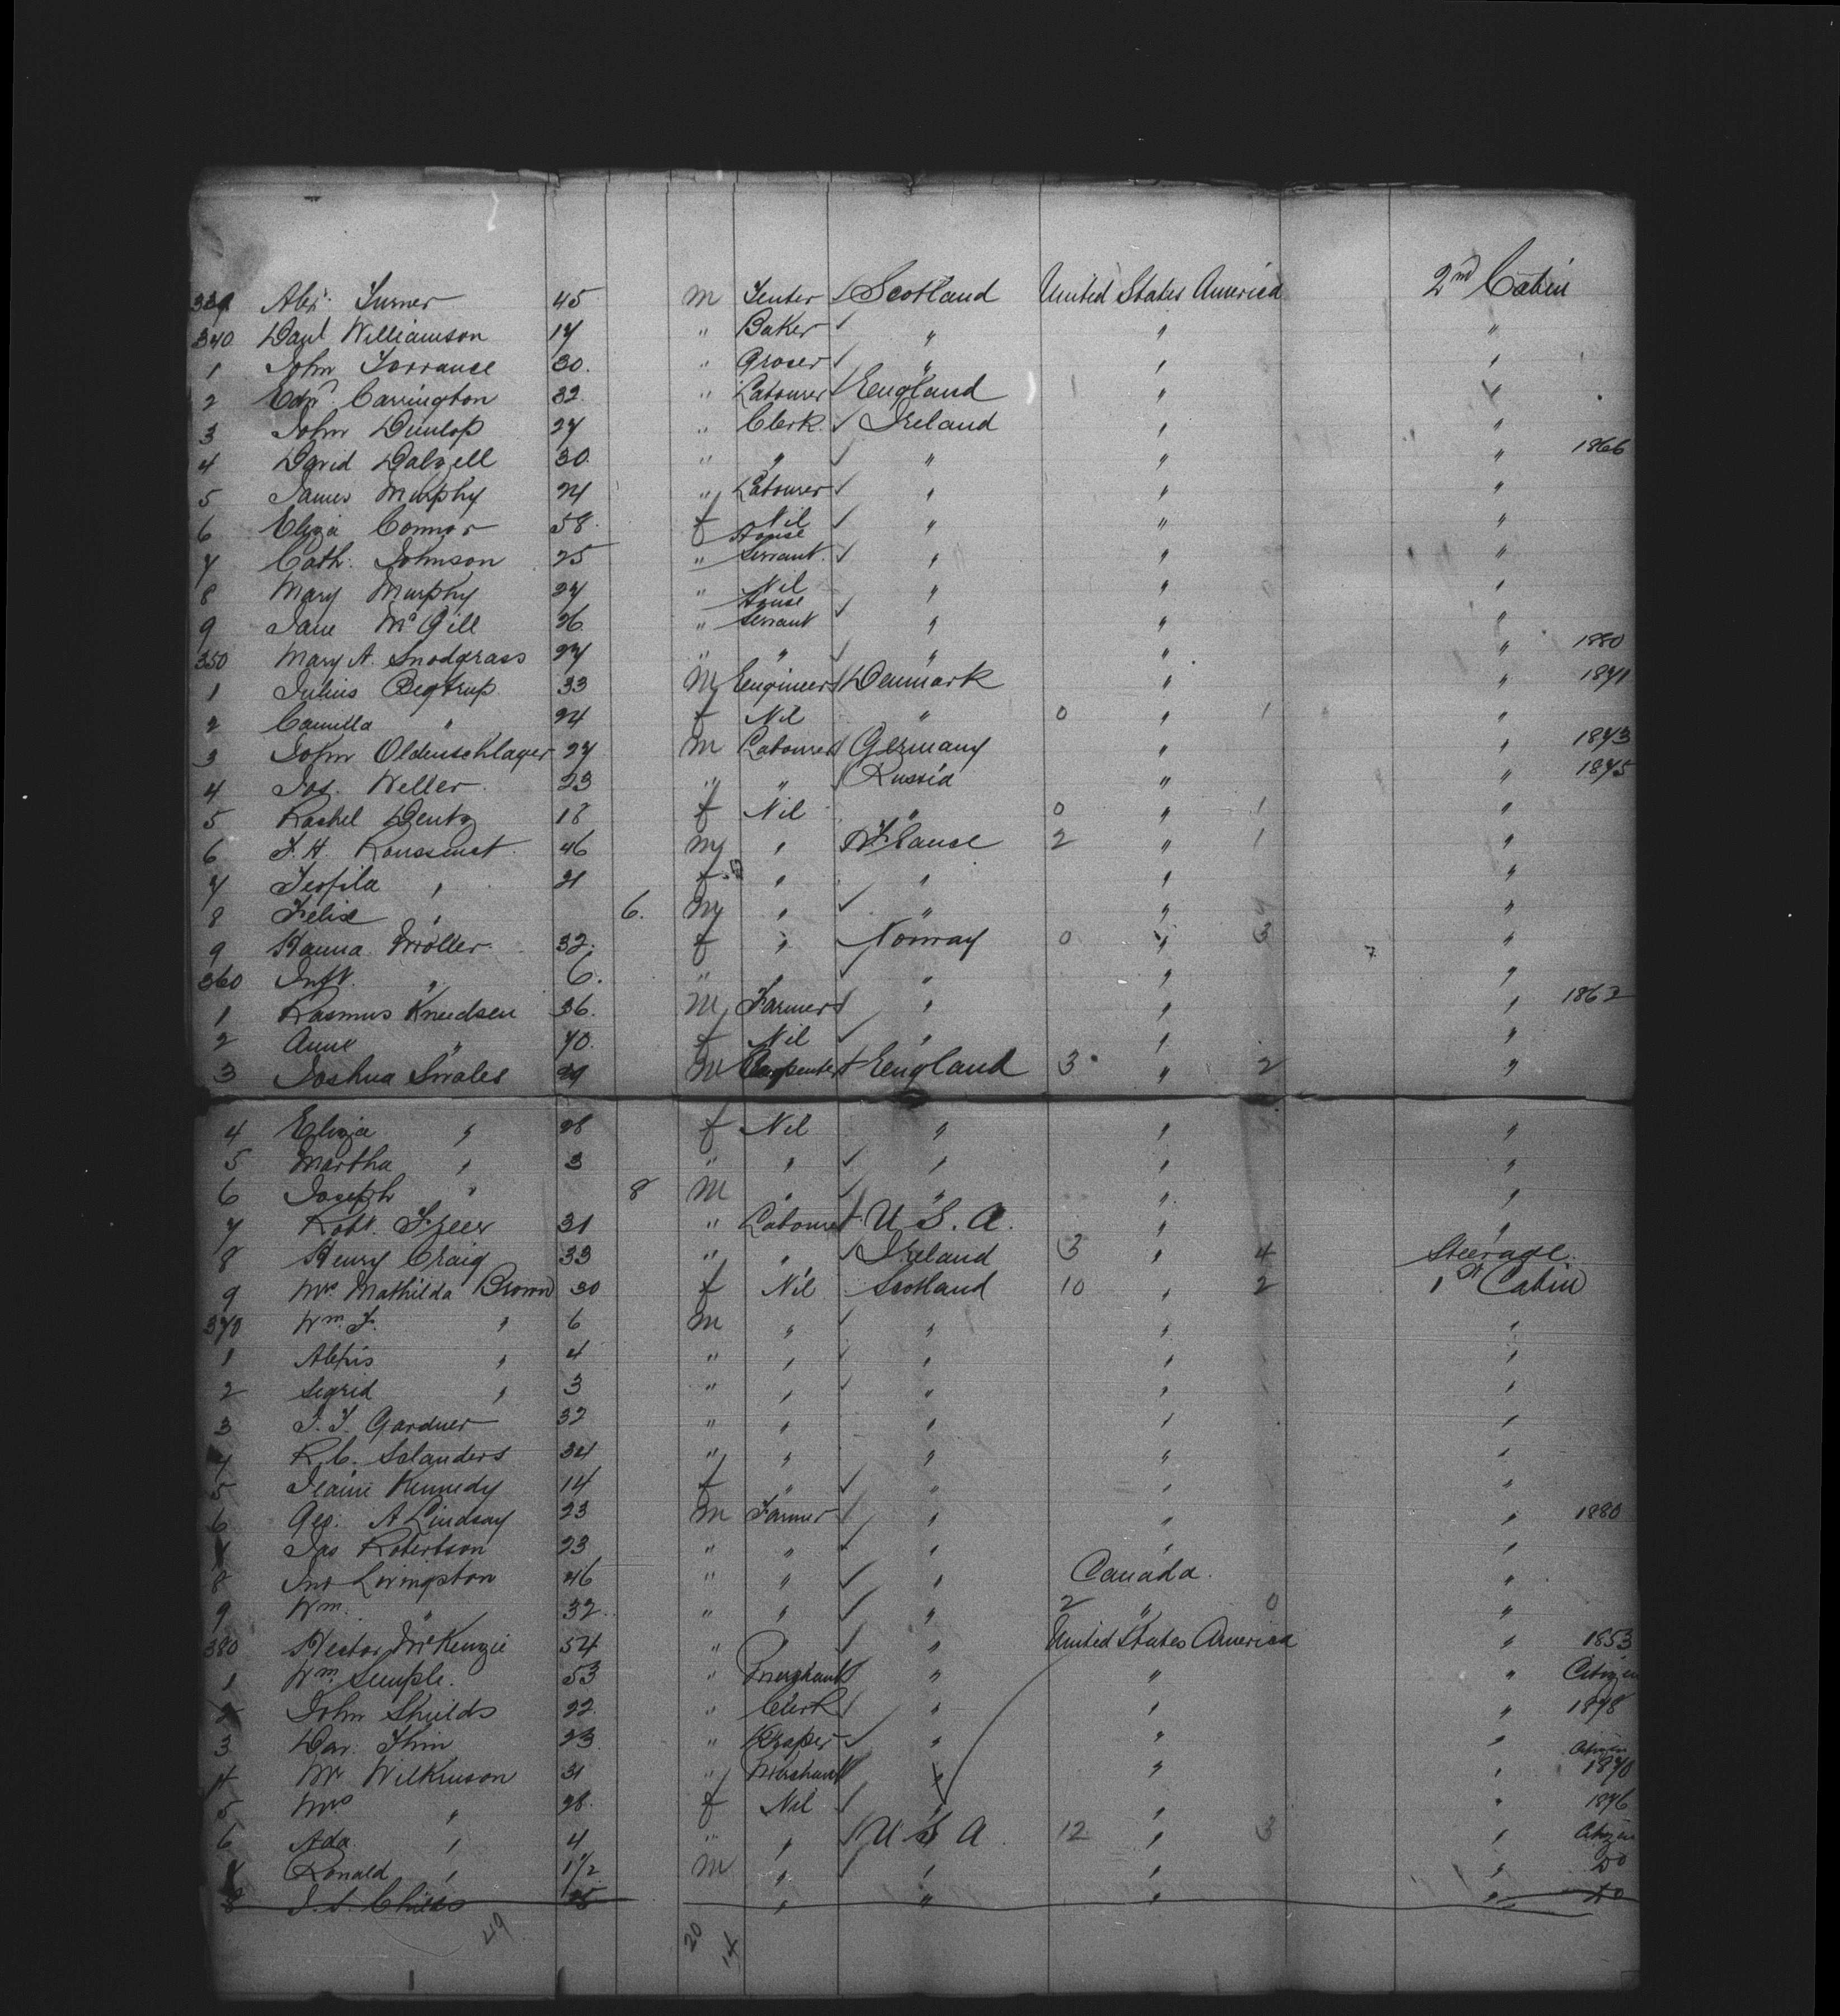 339 Alexr. Turner 45 m Tenter Scotland United States America 2nd Cabin
340 Danl Williamson 17 " Baker " " "
1 John Torrance 30. " Grocer " " "
2 Edwd Carrington 32 " Labourer England " "
3 John Dunlop 27 " Clerk Ireland " "
4 David Dalzell 30. " " " " " 1866
5 James Murphy 24 " Labourer " " "
6 Eliza Connor 58. f Nil " " "
7 Cath. Johnson 25 " House Servant " " "
8 Mary Murphy 27 " Nil " " "
9 Jane McGill 26. " House Servant " " "
350 Mary A. Snodgrass 27 " " " " " 1880
1 Julius Begtrup 33 M Engineer Denmark " " 1871
2 Camilla " 24 f Nil " 0 " 1 "
3 John Oldenschlager 27 M Labourer Germany " " 1873
4 Jos. Weller 23 " " Russia " " 1875
5 Rachel Dentz 18 f Nil " 0 " 1 "
6 F. H. 46 M " France 2 " 1 "
7 Teofila " 21 f " " " "
8 Felix " 6. M " " " "
9 Hanna Moller 32. f " Norway 0 " 3 "
360 Inft. " 6. " " " " "
1 Rasmus Knudsen 36. M Farmer " " " 1862
2 Anne " 70. f Nil " " "
3 Joshua Swales 29 M Carpenter England 3 " 2 "
4 Eliza " 28 f Nil " " "
5 Martha " 3 " " " " "
6 Joseph " 8 M " " " "
7 Robt. Freer 31 " Labourer U. S. A. " "
8 Henry Craig 33 " " Ireland 3 " 4 Steerage.
9 Mrs Mathilda Brown 30 f Nil Scotland 10 " 2 1st Cabin
370 Wm. F. " 6 M " " " "
1 Alexis " 4 " " " " "
2 Sigrid " 3 " " " " "
3 J. T. Gardner 32 " " " " "
4 R. C. Salanders 34 " " " " "
5 Jeanie Kennedy 14 f " " " "
6 Geo. A Lindsay 23 M Farmer " " " 1880
7 Jas Robertson 23 " " " " "
8 Jno Livingston 46 " " " Canada. "
9 Wm. " 32. " " " 2 " 0 "
380 Hector McKenzie 54 " " " United States America " 1853
1 Wm Semple. 53 " Merchant " " " Citizen
2 John Shields 22. " Clerk " " " 1878
3 Dav. Thin 23 " Draper " " "
4 Mr Wilkinson 31 " Merchant " " " Citizen 1870
5 Mrs " 28. f Nil " " " 1876
6 Ada " 4 " " U S A 12 " 3 " Citizen
7 Ronald " 1½ M " " " " Do
8 J. S. Childs 25 " " " " Do
29 20 14